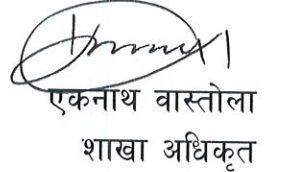 एकनाथ वास्तोला
शाखा अधिकृत